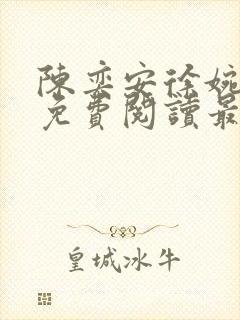 陳奕安徐婉
免費閱讀最
皇城冰牛